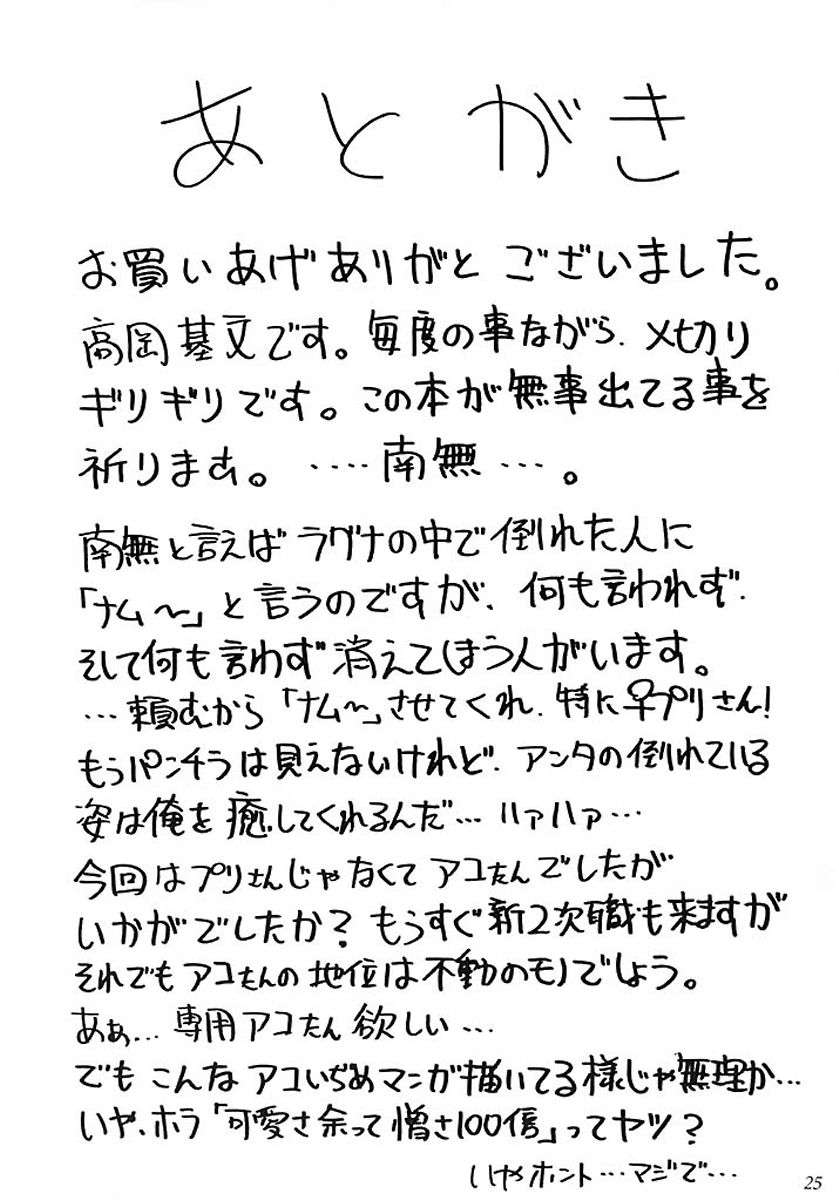 あとがき
お買いあげありがとございました。
高岡基文です。毎度の事ながら、〆切り
ギリギリです。この本が無事出てる事を
祈りまあ。‥‥南無…。
南無と言えばラグナの中で倒れた人に
「ナム〜」と言うのですが、何も言われず、
そして何も言わず消えてしまう人がいます。
…頼むから「ナム〜」させてくれ、特に♀プリさん!
もうパンチラは見えないけれど、アンタの倒れている
姿は俺を癒してくれるんだ…ハァハァ…
今回はプリさんじゃなくてアコたんでしたが
いかがでしたか?もうすぐ新2次職も来ますが
それでもアコたんの地位は不動のモノでしょう。
あぁ…専用アコたん欲しい…
でもこんなアコいぢめマンガ描いてる様じゃ無理か…
いや、ホラ「可愛さ余って憎さ100倍」ってヤツ?
いやホント…マジで…
25